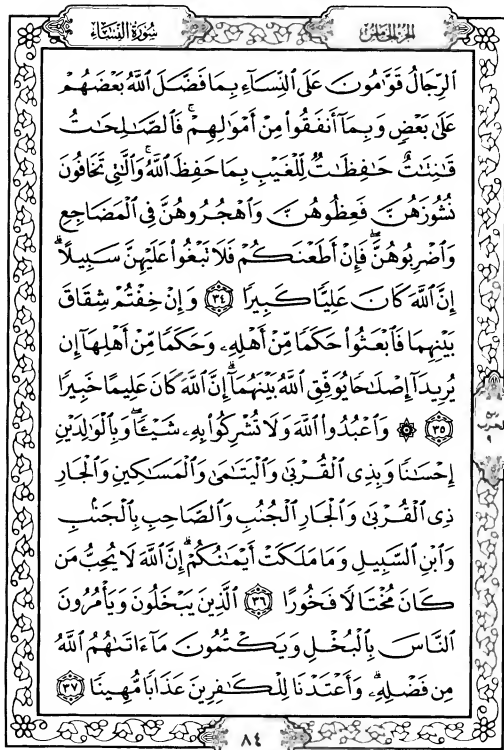 سُورَةُ النِّسَاءِ
الجزء الخامس
ٱلرِّجَالُ قَوَّٰمُونَ عَلَى ٱلنِّسَآءِ بِمَا فَضَّلَ ٱللَّهُ بَعْضَهُمْ
عَلَىٰ بَعْضٍ وَبِمَآ أَنفَقُوا۟ مِنْ أَمْوَٰلِهِمْ ۚ فَٱلصَّـٰلِحَـٰتُ
قَـٰنِتَـٰتٌ حَـٰفِظَـٰتٌ لِّلْغَيْبِ بِمَا حَفِظَ ٱللَّهُ ۚ وَٱلَّـٰتِى تَخَافُونَ
نُشُوزَهُنَّ فَعِظُوهُنَّ وَٱهْجُرُوهُنَّ فِى ٱلْمَضَاجِعِ
وَٱضْرِبُوهُنَّ ۖ فَإِنْ أَطَعْنَكُمْ فَلَا تَبْغُوا۟ عَلَيْهِنَّ سَبِيلًا ۗ
إِنَّ ٱللَّهَ كَانَ عَلِيًّا كَبِيرًا ٣٤ وَإِنْ خِفْتُمْ شِقَاقَ
بَيْنِهِمَا فَٱبْعَثُوا۟ حَكَمًا مِّنْ أَهْلِهِۦ وَحَكَمًا مِّنْ أَهْلِهَآ إِن
يُرِيدَآ إِصْلَـٰحًا يُوَفِّقِ ٱللَّهُ بَيْنَهُمَآ ۗ إِنَّ ٱللَّهَ كَانَ عَلِيمًا خَبِيرًا
٣٥ ۞ وَٱعْبُدُوا۟ ٱللَّهَ وَلَا تُشْرِكُوا۟ بِهِۦ شَيْـًٔا ۖ وَبِٱلْوَٰلِدَيْنِ
إِحْسَـٰنًا وَبِذِى ٱلْقُرْبَىٰ وَٱلْيَتَـٰمَىٰ وَٱلْمَسَـٰكِينِ وَٱلْجَارِ
ذِى ٱلْقُرْبَىٰ وَٱلْجَارِ ٱلْجُنُبِ وَٱلصَّاحِبِ بِٱلْجَنۢبِ
وَٱبْنِ ٱلسَّبِيلِ وَمَا مَلَكَتْ أَيْمَـٰنُكُمْ ۗ إِنَّ ٱللَّهَ لَا يُحِبُّ مَن
كَانَ مُخْتَالًا فَخُورًا ٣٦ ٱلَّذِينَ يَبْخَلُونَ وَيَأْمُرُونَ
ٱلنَّاسَ بِٱلْبُخْلِ وَيَكْتُمُونَ مَآ ءَاتَىٰهُمُ ٱللَّهُ
مِن فَضْلِهِۦ ۗ وَأَعْتَدْنَا لِلْكَـٰفِرِينَ عَذَابًا مُّهِينًا ٣٧
٨٤